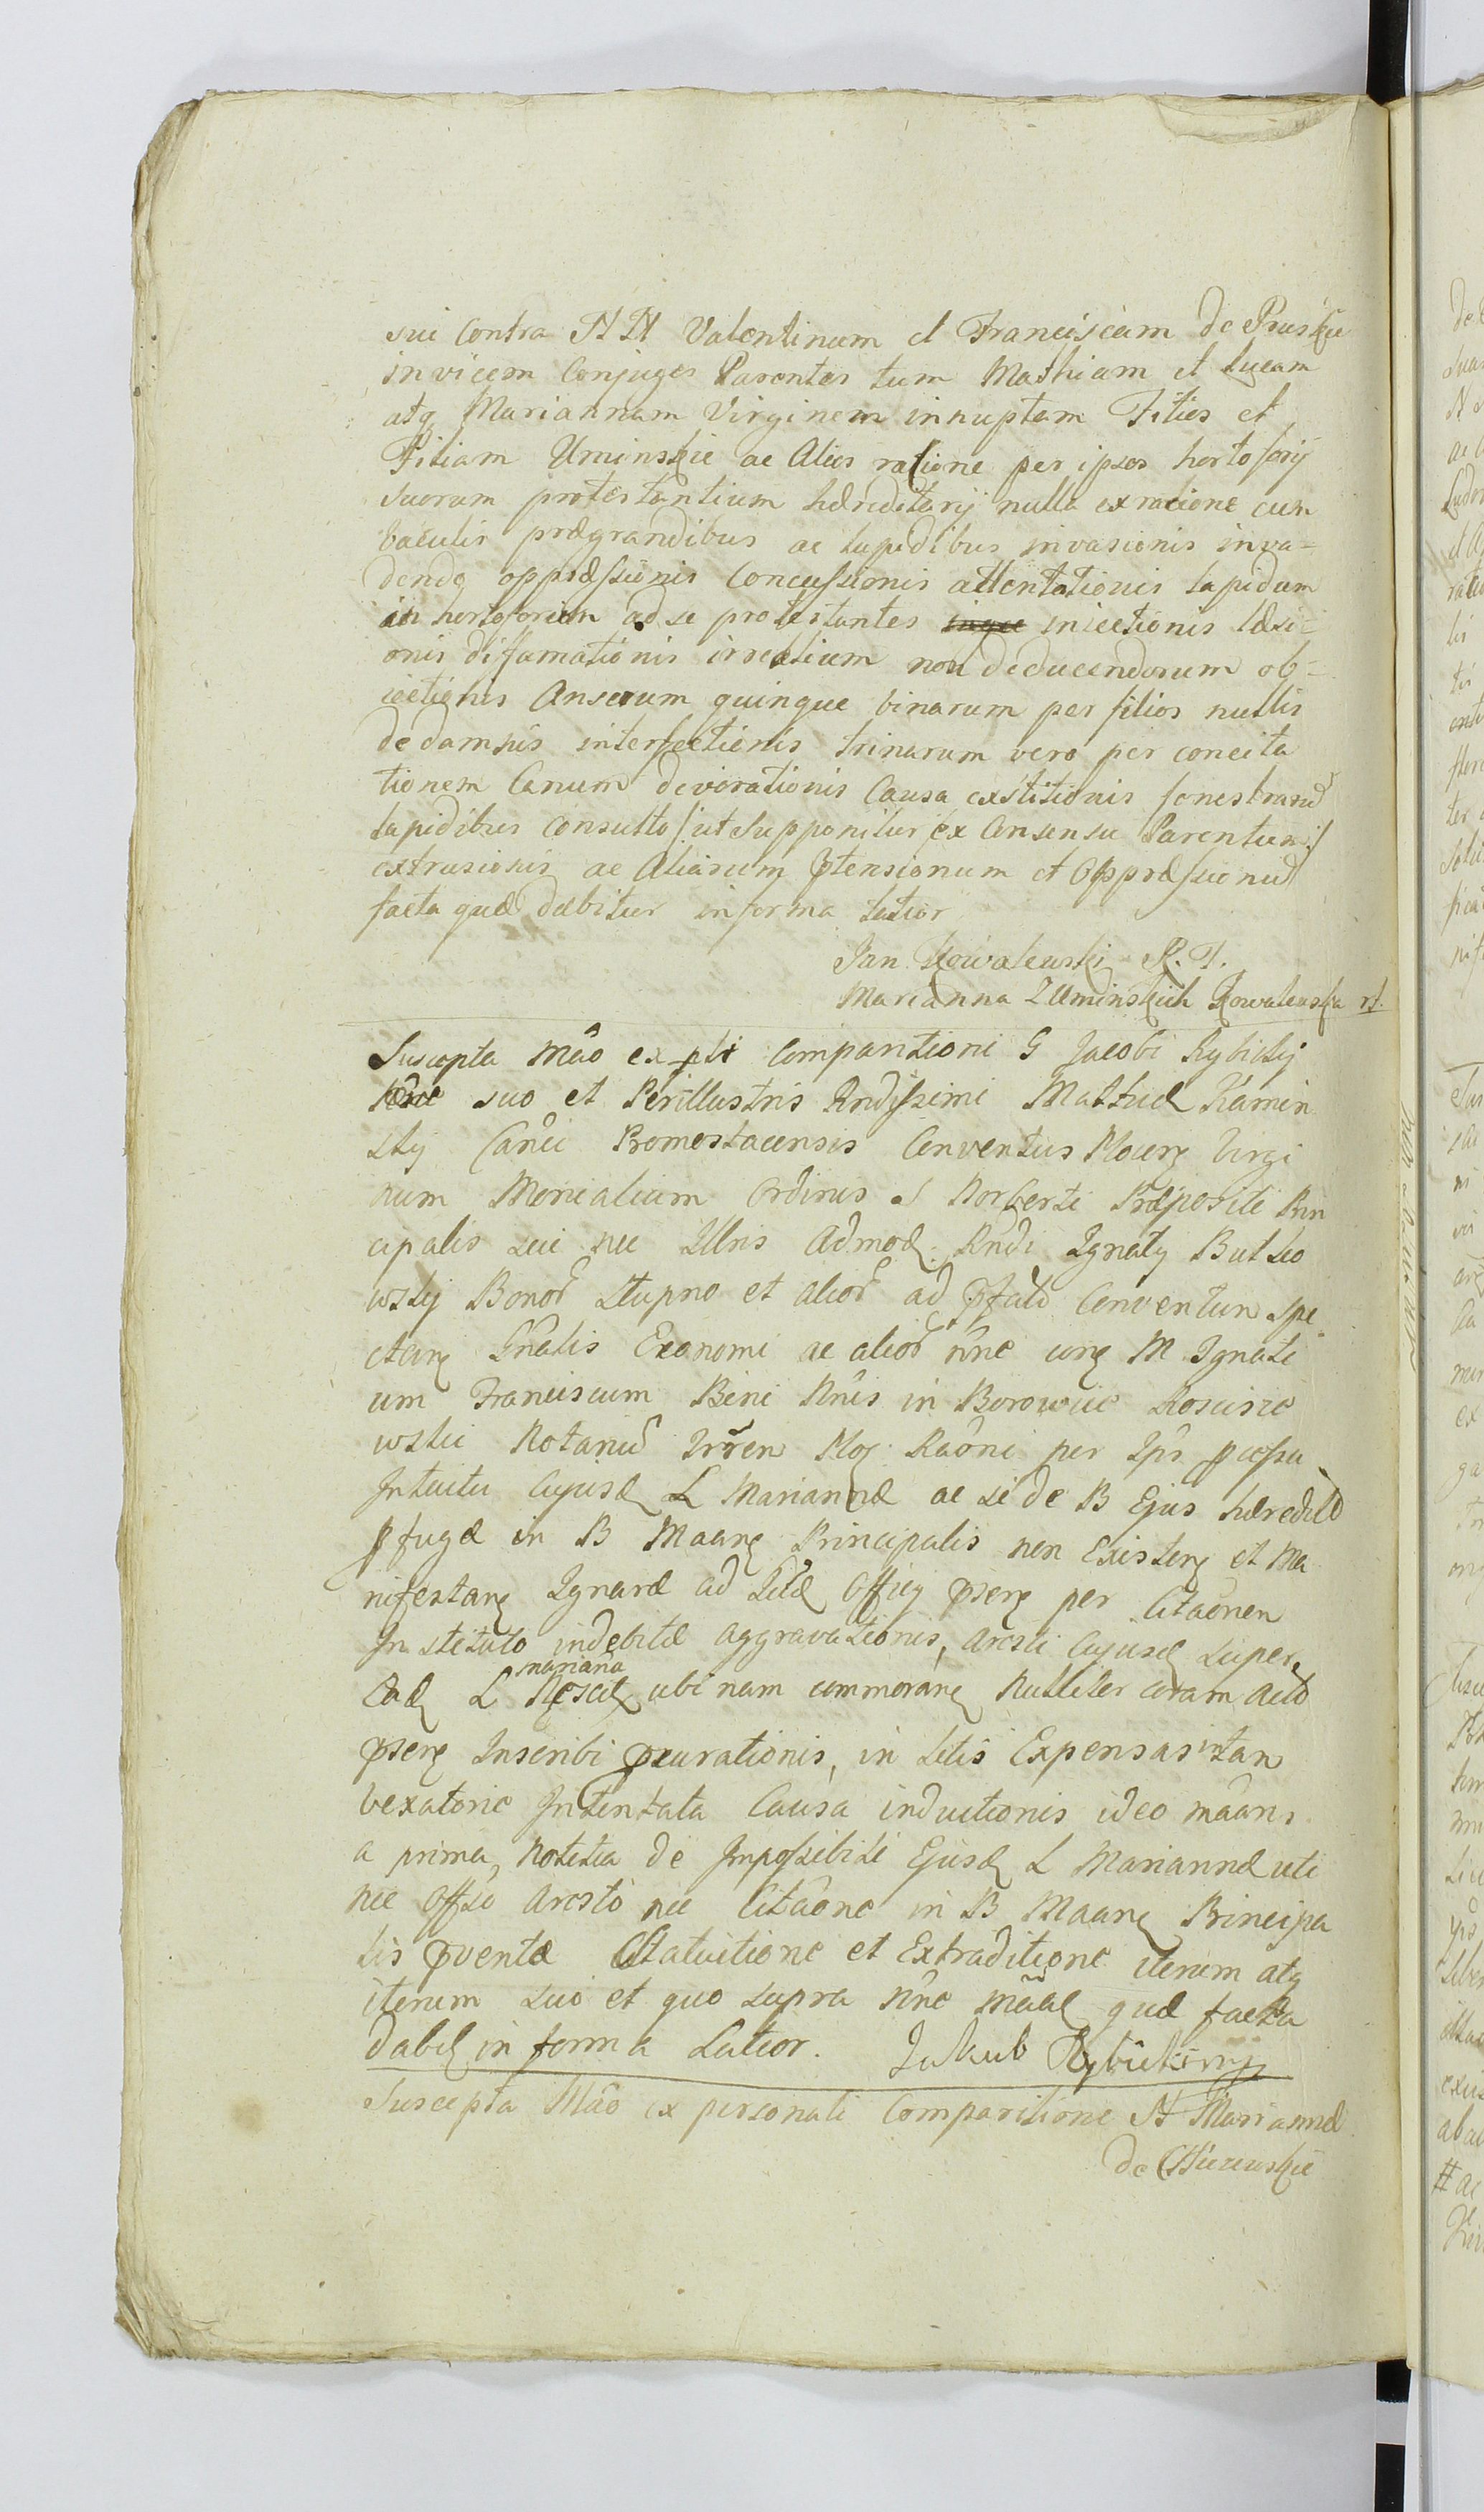 sui contra NN Valentinum et Franciscam de Pruskie
invicem Conjuges Parentes tum Mathiam et Lucam
atq Mariannam Virginem innuptam Filios et
Filiam Uminskie ac Alios ratione per ipsos hortosorij
suorum protestantium hæreditarij nulla ex racione cum
baculis prægrandibus ac lapidibus invasionis inva=
dendo oppræssionis Concussionis attentationis lapidum
in hortosorium ad se protestantes inque iniectionis læsi=
onis diffamationis irrealium non deducendorum ob=
iectionis Anserum quinque binarum per filios nullis
de damnis interfectionis trinarum vero per concita
tionem Canum devorationis Causa exstitionis fenestrarū
lapidibus consulto /:ut supponitur ex Consensu Parentum:/
extrusionis ac Aliarum ptensionum et Oppræssionū
facta quæ dabitur in forma latior
Jan Kowalewski R. T.
Marianna z Uminskich Kowalewska rt.
Suscepta Mâo ex pli Comparitioni G Jacobi Rybickij
Nône suo et Perillustris Rndissimi Matthiæ Kamin
skij Canci Premestacensis Conventus Plocen Virgi
num Monialium Ordinis S Norberti Præpositi Prin
cipalis sui nec Illris Admod. Rndi Ignaty Butko
wskij Bonor Słupno et alior ad pfatū Conventum spe
ctan Gnalis Economi ac alior nne con M Ignati
um Franciscum Bini Nnis in Borowice Kosciszc
wski Notariū Trren Ploc Raône per Ips pcessu
Intuitu Cujusd L Mariannæ ac si de B Ejus hæreditō
pfugæ in B Maan Principalis non Existen et Ma
nifestan Ignaræ ad Lit Officij psen per Citaônen
Instituto indebitæ aggravationis, aresti Cujusd super
Ead L Mariana ubi nam commoran Nulliter coram actō
psen Inscribi pcurationis, in litis Expensas tan
vexatorie Intentata Causa inductionis ideo maans
a prima, Notitia de Impossibili Ejusd L Mariannæ uti
nec Offso Arestō nec Citaône in B Maan Principa
lis pventæ Statuitione et Extraditione iterum atq
iterum suo et quo supra nne maal quæ facta
dabit in forma Latior. Jakub Rybicki mp
Suscepta Mâo ex personali Comparitione N Mariannæ
de